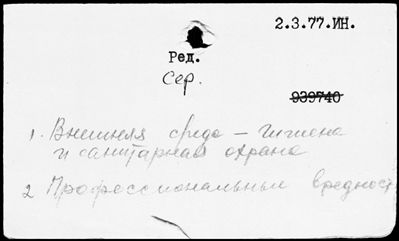 2.3.77.ИН.
Ред.
Сер.
939740
1. Внешняя среда – гигиена
и санитарная охрана
2 Профессиональные вредност